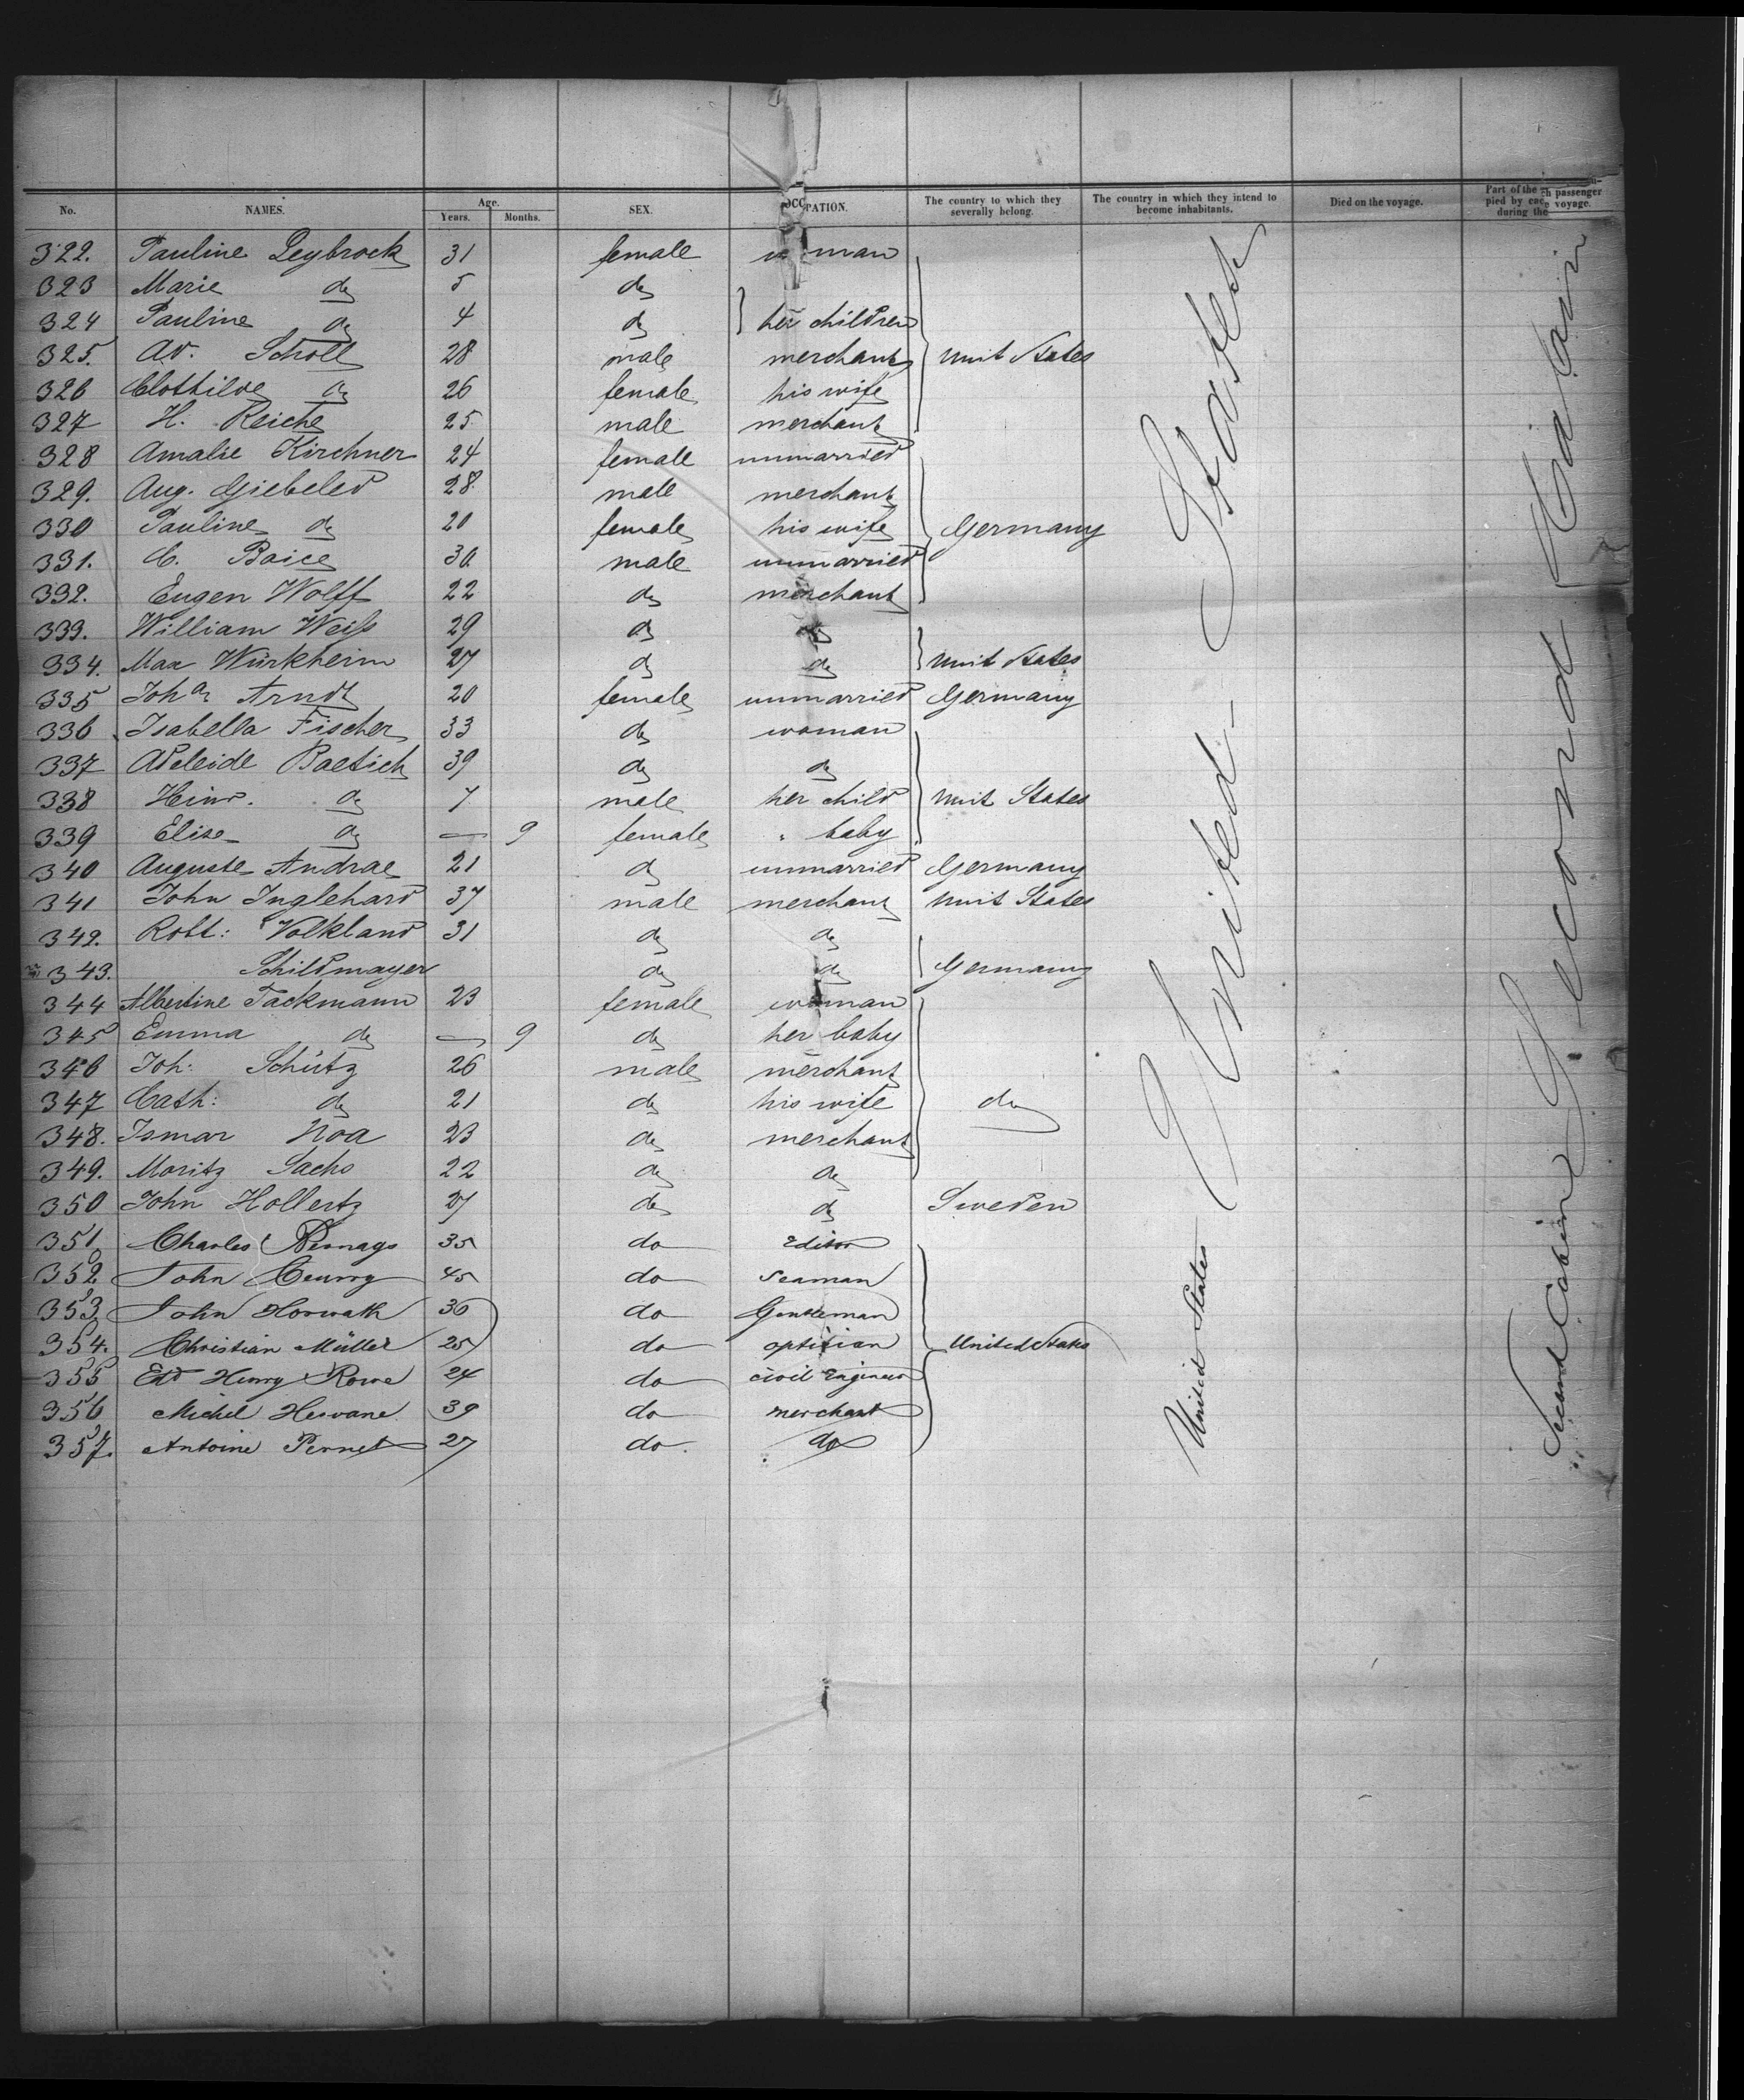 No. NAMES. Age. Years. Months. SEX. OCCUPATION. The country to which they severally belong. The country in which they intend to become inhabitants. Died on the voyage. Part of the pied by each passenger during the voyage.
322. Pauline Leybrock 31 female woman
323 Marie do 5 do
324 Pauline do 4 do her children
325. Ad. Scholl 28 male merchant Unit States
326 Clothilde do 26 female his wife
327 H. Reiche 25 male merchant
328 Amalie Kirchner 24 female unmarried
329. Aug. Giebeled 28 male merchant
330 Pauline do 20 female his wife Germany
331. C. Baice 30 male unmarried
332. Eugen Wolff 22 do merchant
333. William Weiß 29 do do
334. Max Würkheim 27 do do Unit States
335 Joha Arndt 20 female unmarried Germany
336 Isabella Fischer 33 do woman
337 Adeleide Baetich 39 do do
338 Heinr. do 7 male her child Unit States
339 Elise do — 9 female " baby
340 Auguste Andrae 21 do unmarried Germany
341 John Inglehard 37 male merchant Unit States
342. Robt: Volkland 31 do do
343. Schildmayer do do Germany
344 Albertine Tackmann 23 female woman
345 Emma do — 9 do her baby
346 Joh: Schütz 26 male merchant
347 Cath: do 21 do his wife do
348. Ismar Noa 23 do merchant
349. Moritz Sachs 22 do do
350 John Hollertz 27 do do Sweden
351 Charles 35 do Editor
352 John 45 do Seaman
353 John Horwath 36 do Gentleman
354. Christian Müller 25 do optitian United States
355 Edd Henry Rowe 24 do civil Engineer
356 Michel Hervane 39 do merchant
357. Antoine Pernet 27 do. do
United States
United States
Second Cabin
Second Cabin